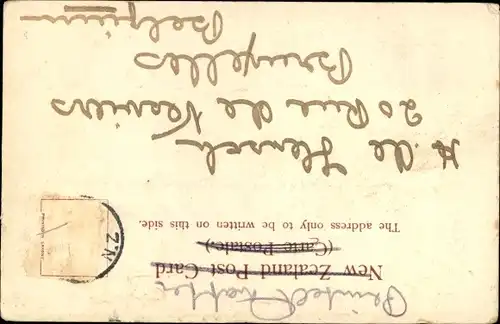 New Zealand Post Card
(Carte Postale)
The address only to be written on this side.
N.Z
de Hensch
20 Rue de
Bruxelles
Belgium